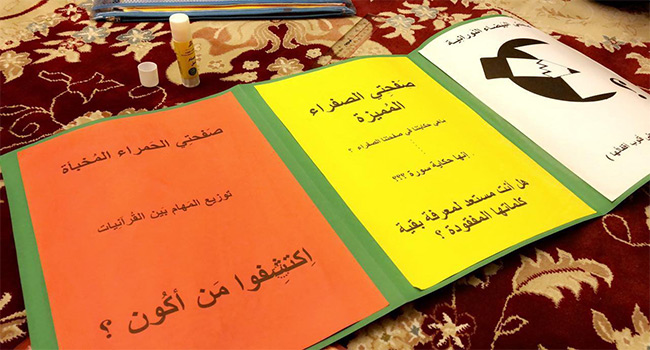 صفحتي الحمراء المُخبأة
توزيع المهام بَين القُرآنِيات
اِكتشِفوا مَن أكُون ؟
صفحتي الصفراء
المُميزة
ماهي حكايتنا في صفحتنا الصفراء ؟
إنها حكاية سورة ؟؟؟
هل أنت مستعد لمعرفة بقية
كلماتها المفقودة ؟
البيضاء الورائية
؟